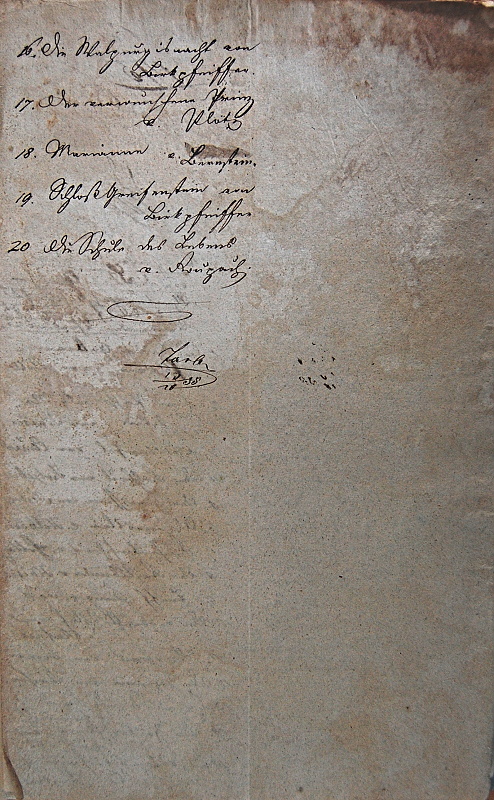 16. Die Walpurgisnacht von
Birkpfeiffer.
17. Der verwunschene Prinz
v. Plötz
18. Marianne v. Bernstein.
19. Schloß Greifenstein von
Birkpfeiffer
20 Die Schule des Lebens
v. Raupach.